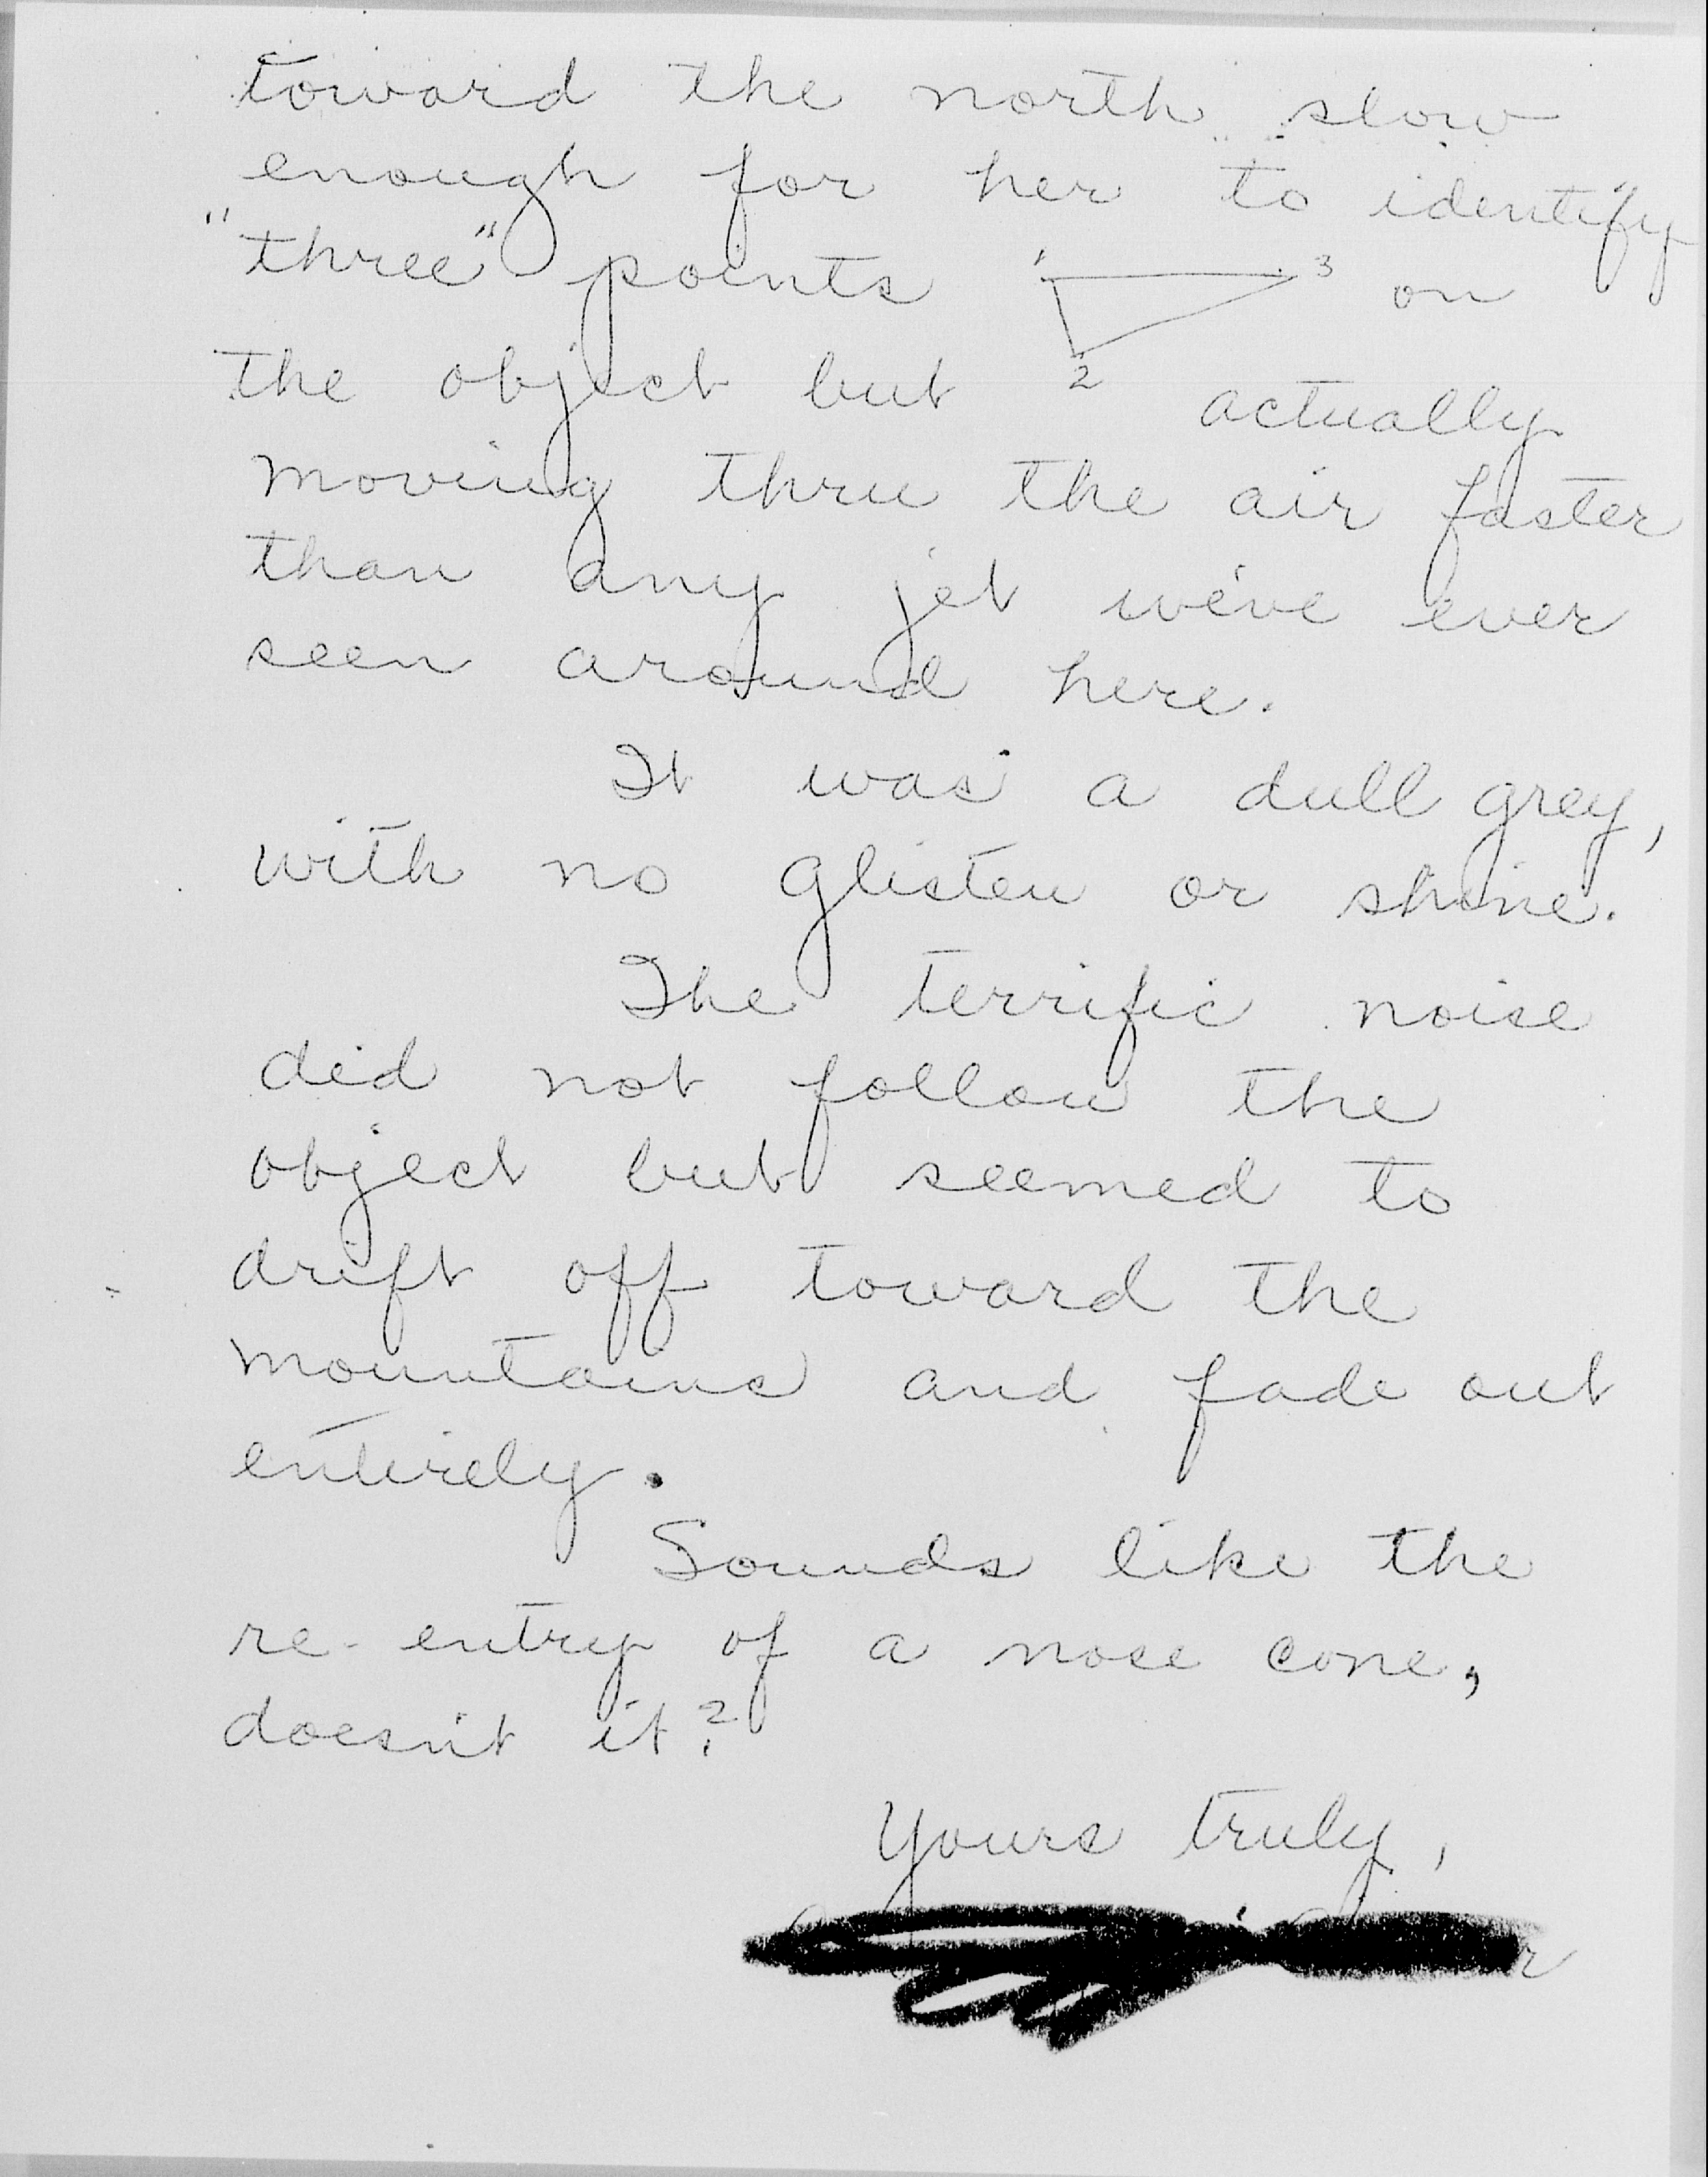 toward the north slow
enough for her to identify
"three" points 1 3 on
2
the object but actually
moving thru the air faster
than any jet we've ever
seen around here.
It was a dull grey,
with no glisten or shine.
The terrific noise
did not follow the
object but seemed to
drift off toward the
mountains and fade out
entirely.
Sounds like the
re-entry of a nose cone,
doesn't it?
Yours truly,